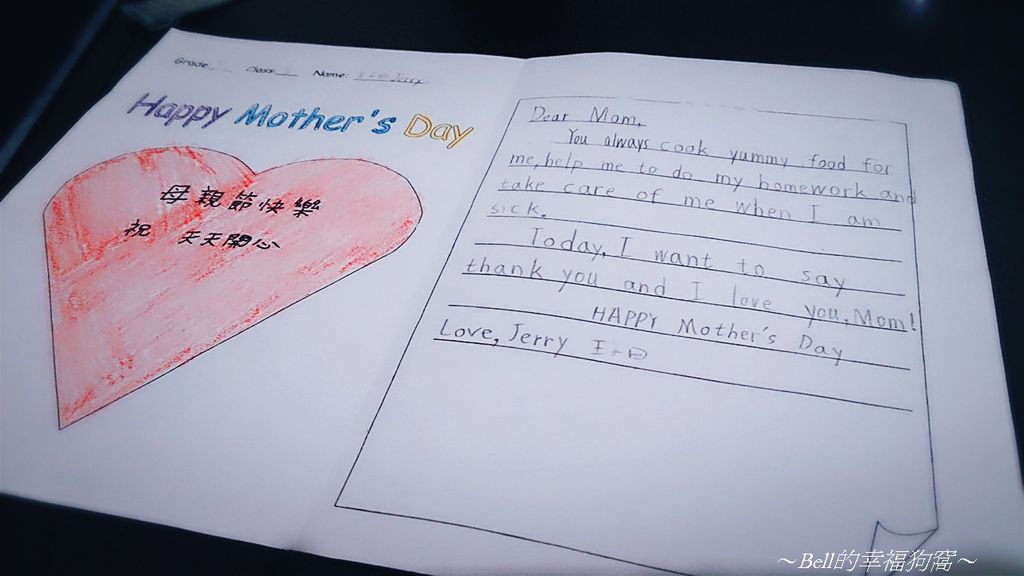 Grade: Class: Name: Jerry
Happy Mother's Day
母親節快樂
祝 天天開心
Dear Mom,
You always cook yummy food for
me, help me to do my homework and
take care of me when I am
sick.
Today, I want to say
thank you and I love you, Mom!
HAPPY Mother's Day
Love, Jerry
～Bell的幸福狗窩～